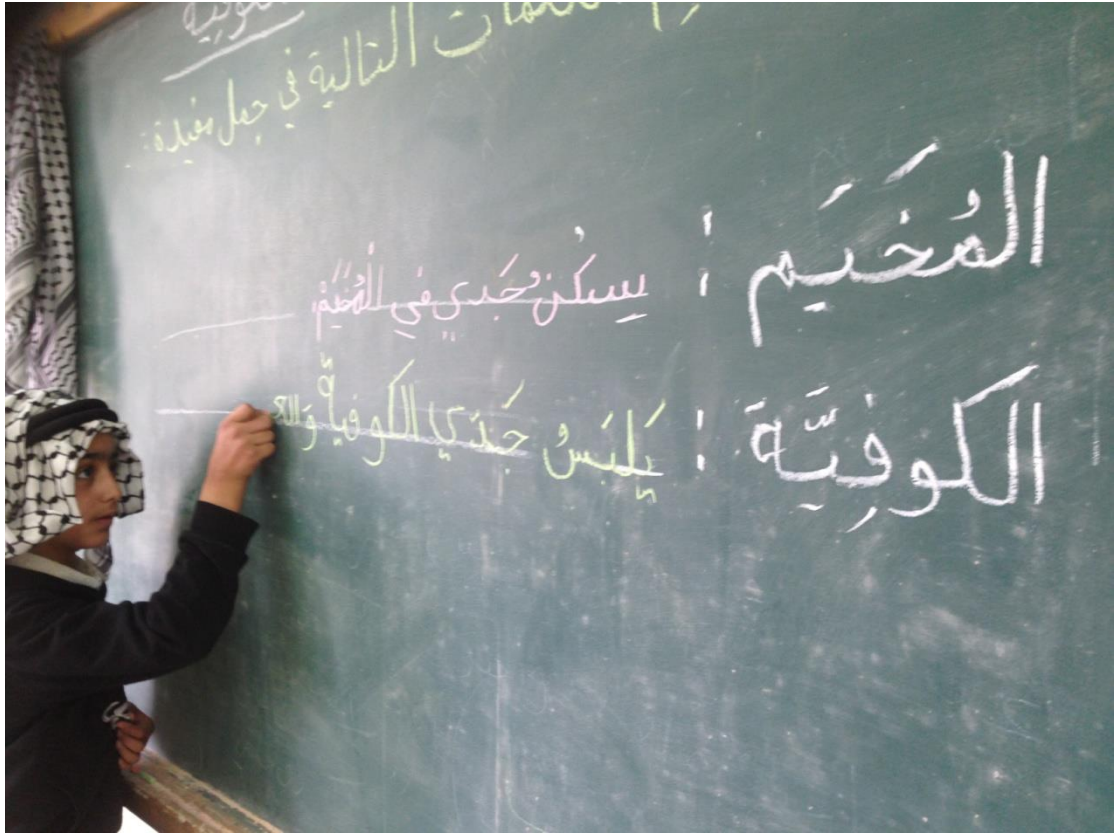 التالية في جمل مفيدة:
المُخَيَم : يسكنُ جَدي في المُخَيَّم
الكوفِيَّة : يَلبَسُ جَدّي الكوفية وَالع